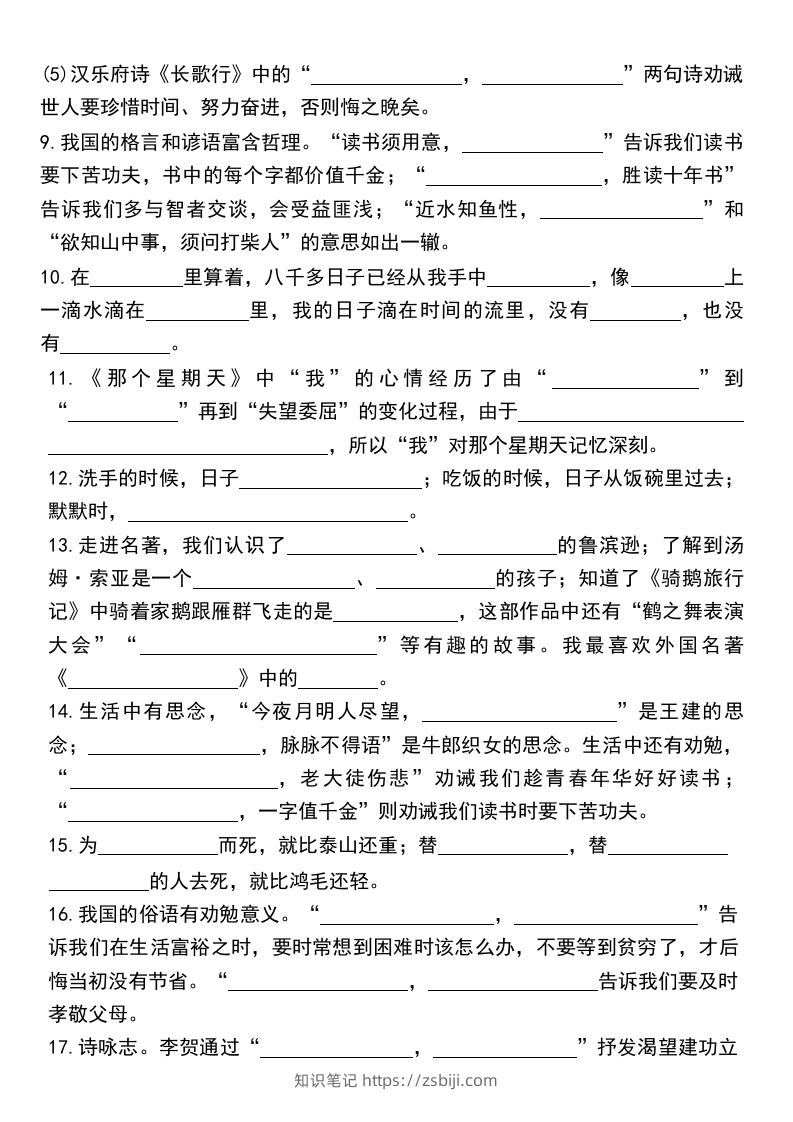 (5)汉乐府诗《长歌行》中的“______________，______________”两句诗劝诫
世人要珍惜时间、努力奋进，否则悔之晚矣。
9.我国的格言和谚语富含哲理。“读书须用意，______________”告诉我们读书
要下苦功夫，书中的每个字都价值千金；“________________，胜读十年书”
告诉我们多与智者交谈，会受益匪浅；“近水知鱼性，________________”和
“欲知山中事，须问打柴人”的意思如出一辙。
10.在_________里算着，八千多日子已经从我手中__________，像_________上
一滴水滴在__________里，我的日子滴在时间的流里，没有_________，也没
有___________。
11.《那个星期天》中“我”的心情经历了由“______________”到
“___________”再到“失望委屈”的变化过程，由于______________________
____________________________，所以“我”对那个星期天记忆深刻。
12.洗手的时候，日子__________________；吃饭的时候，日子从饭碗里过去；
默默时，____________________________。
13.走进名著，我们认识了_____________、____________的鲁滨逊；了解到汤
姆·索亚是一个________________、____________的孩子；知道了《骑鹅旅行
记》中骑着家鹅跟雁群飞走的是____________，这部作品中还有“鹤之舞表演
大会”“________________________”等有趣的故事。我最喜欢外国名著
《_________________》中的________。
14.生活中有思念，“今夜月明人尽望，____________________”是王建的思
念；_________________，脉脉不得语”是牛郎织女的思念。生活中还有劝勉，
“_____________________，老大徒伤悲”劝诫我们趁青春年华好好读书；
“_________________，一字值千金”则劝诫我们读书时要下苦功夫。
15.为____________而死，就比泰山还重；替_____________，替____________
__________的人去死，就比鸿毛还轻。
16.我国的俗语有劝勉意义。“_________________，__________________”告
诉我们在生活富裕之时，要时常想到困难时该怎么办，不要等到贫穷了，才后
悔当初没有节省。“__________________，_________________告诉我们要及时
孝敬父母。
17.诗咏志。李贺通过“_______________，______________”抒发渴望建功立
知识笔记 https://zsbiji.com